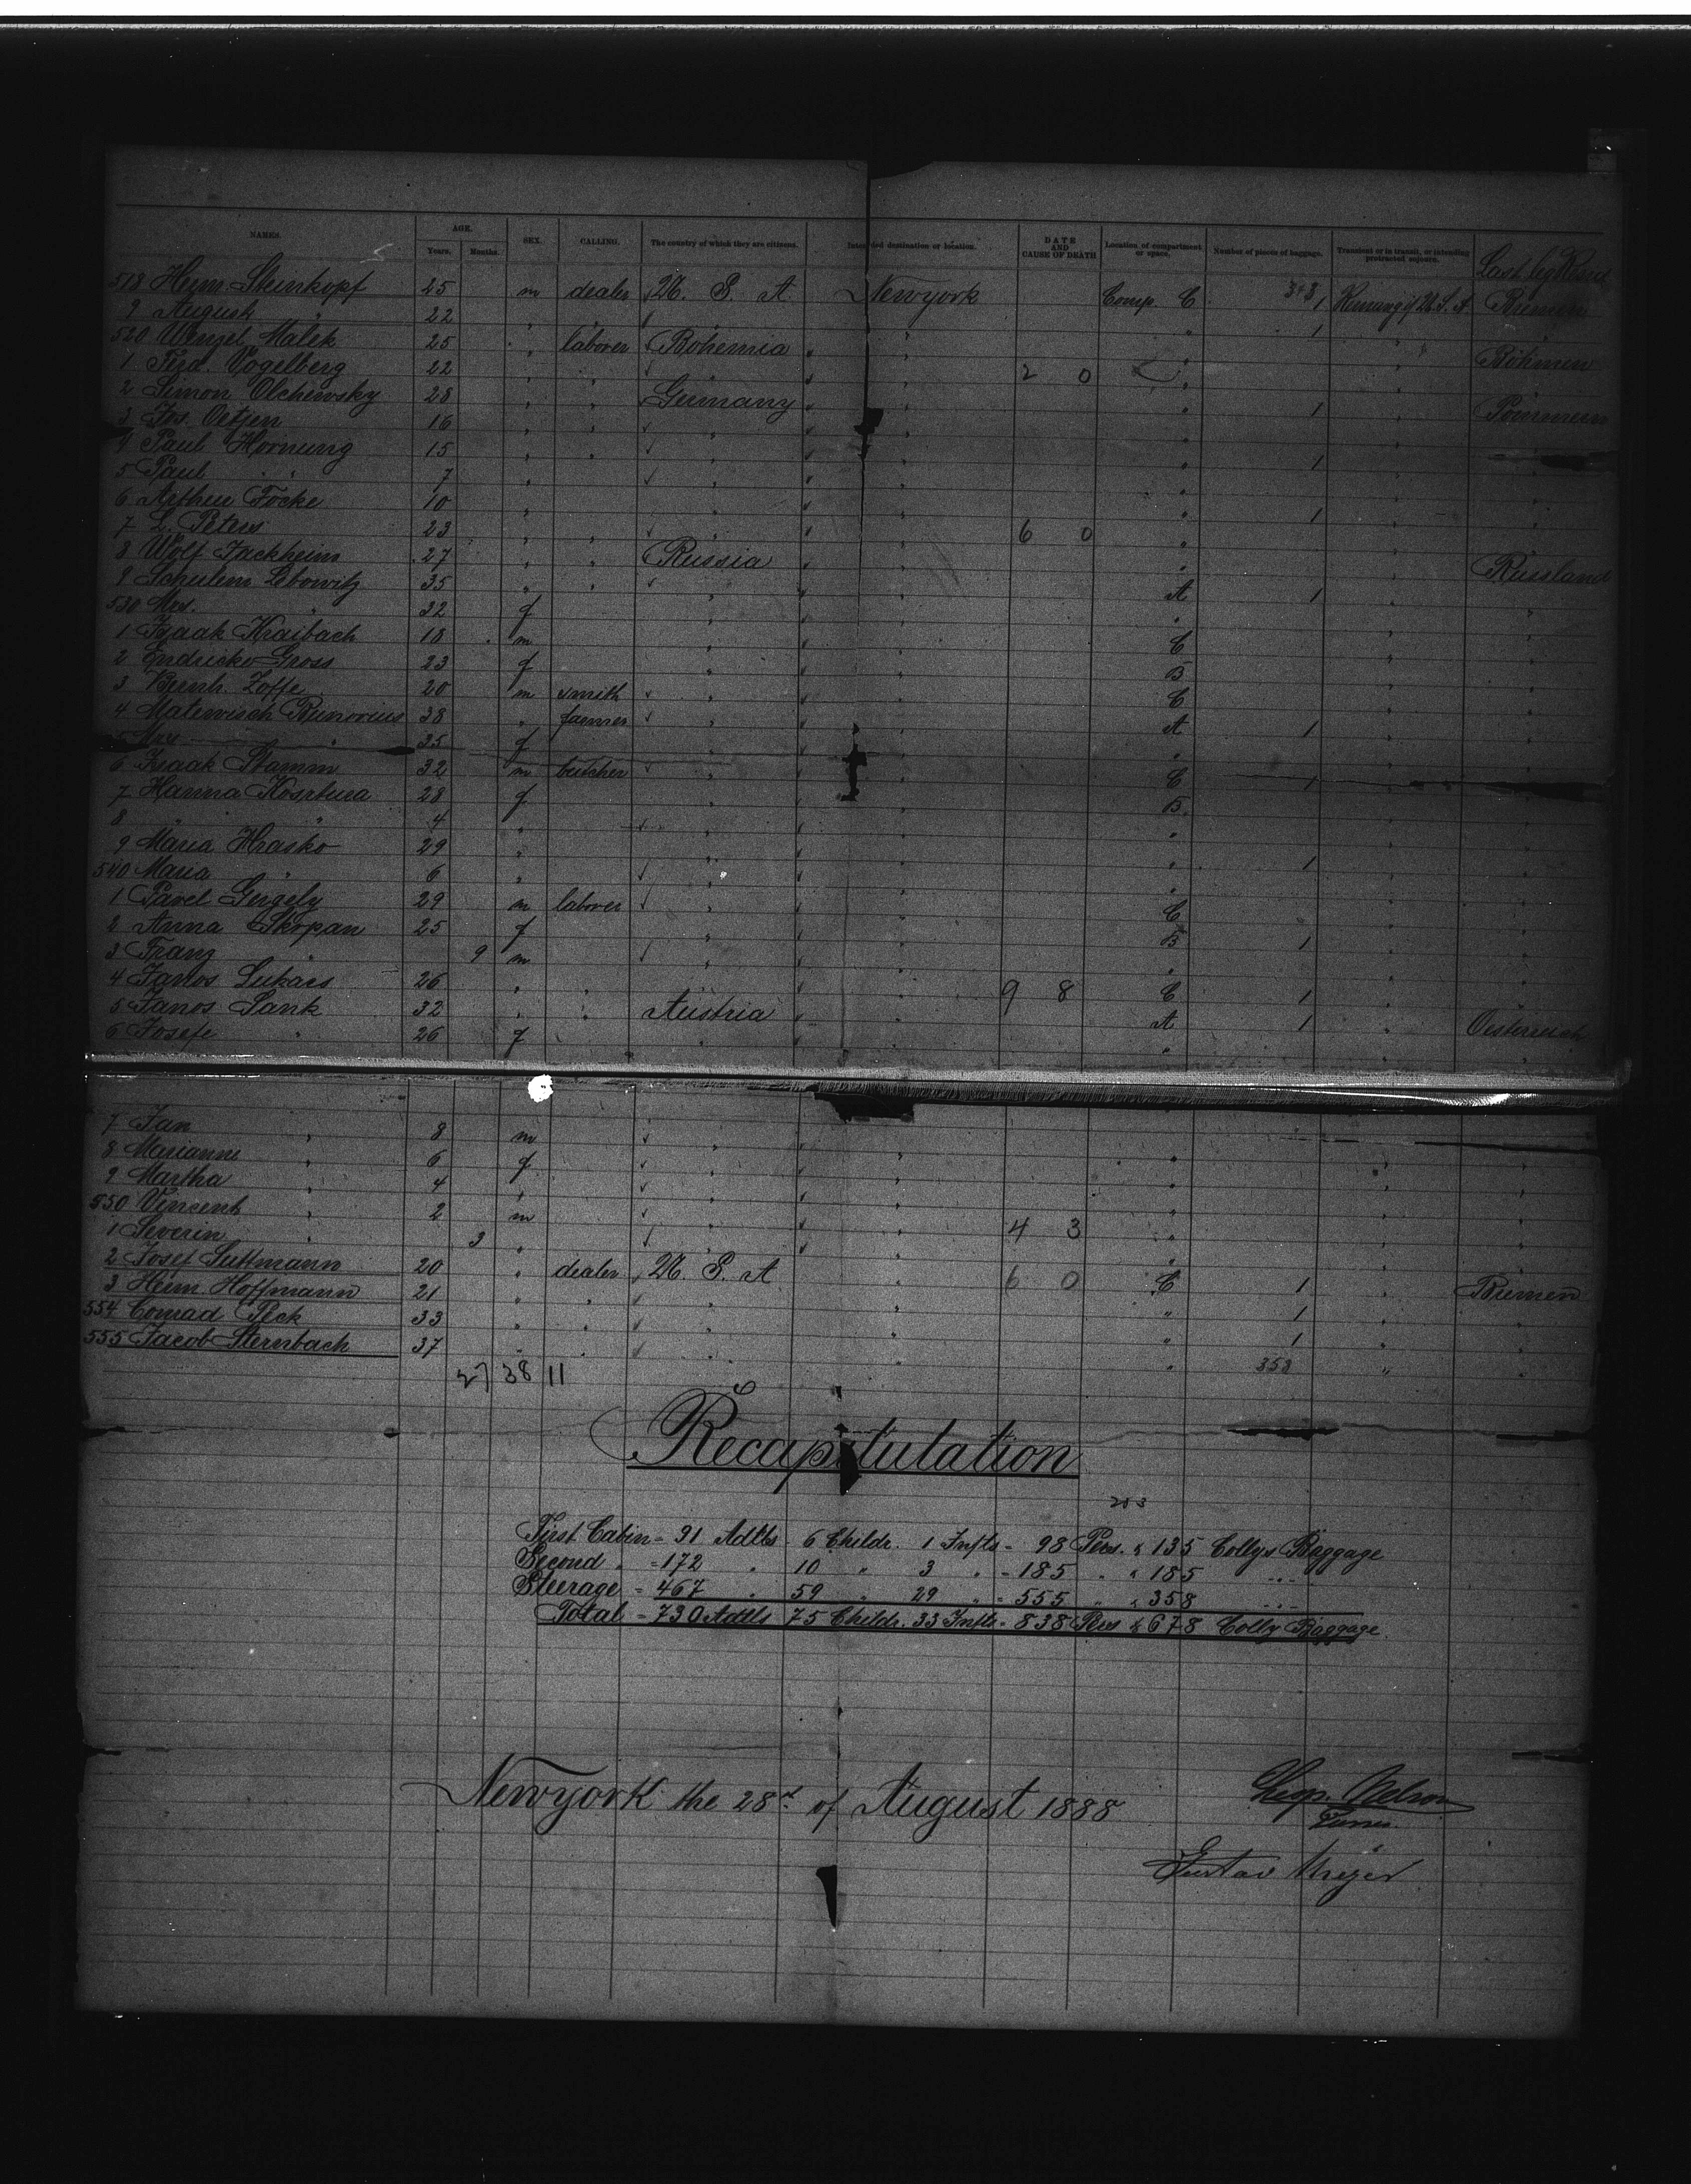 NAMES. AGE. SEX. CALLING. The country of which they are citizens. Intended destination or location. DATE AND CAUSE OF DEATH Location of compartment or space. Number of pieces of baggage. Transient or in transit, or intending protracted sojourn. Last leg Resid
Years. Months.
518 Herm. Steinkopf 25 m dealer U. S. A. Newyork Comp. C. 348 1 Bremen
9 August " 22 " " 1
520 Wenzel Malek 25 " laborer Bohemia " " Böhmen
1 Ferd. Vogelberg 22 " " " 2 0 "
2 Simon Olchewsky 28 " " Germany " 1 Pommern
3 Jos. Oetjen 16 " " " " "
4 Paul Hornung 15 " " " " " 1
5 Paul " 7 " " " "
6 Arthur Focke 10 " " " " 1
7 L. Peters 23 " " " " 6 0 "
8 Wolf Jackheim 27 " " Russia " " Russland
9 Schulem Lebowitz 35 " " " " A 1 "
530 Mrs. " 32 f " " " "
1 Isaak Kraibach 18 m " " C "
2 Endricke Gross 23 f " " B "
3 Bernh. Zoffe 20 m smith " " C "
4 Matewisch Runorius 38 " farmer " " A 1 "
5 Mrs " 35 f " " " "
6 Isaak Stamm 32 m butcher " " C 1 "
7 Hanna Kosztura 28 f " " B. "
8 " " 4 " " " " "
9 Maria Hrasko 29 " " " " 1 "
540 Maria " 6 " " " " "
1 Pavel Gergely 29 m laborer " " C "
2 Anna Skopan 25 f " " B 1 "
3 Franz " 9 m " " " "
4 Janos Lukacs 26 " " " " 9 8 C 1 "
5 Janos Sank 32 " " Austria " A 1 " Oesterreich
6 Josefe " 26 f " " " "
7 Jan " 8 m " " " "
8 Marianne " 6 f " " " "
9 Martha " 4 " " " " "
550 Vincent " 2 m " " " "
1 Severin " 3 " " " 4 3 " "
2 Josef Suttmann 20 " dealer U. S. A " 6 0 C 1 " Bremen
3 Herm. Hoffmann 21 " " " " " 1 " "
554 Conrad Peck 33 " " " " " 1 " "
555 Jacob Sternbach 37 " " " " " 358 " "
27 38 11
Recapitulation
203
First Cabin = 91 Adtls. 6 Childr. 1 Infts = 98 Pers. & 135 Collys Baggage
Second " = 172 " 10 " 3 " = 185 " " 185 " "
Steerage = 467 " 59 " 29 " = 555 " " 358 " "
Total = 730 Adtls 75 Childr. 33 Infts = 838 Pers & 678 Colly Baggage.
Newyork the 28th of August 1888
Nelson
Gustav Meyer